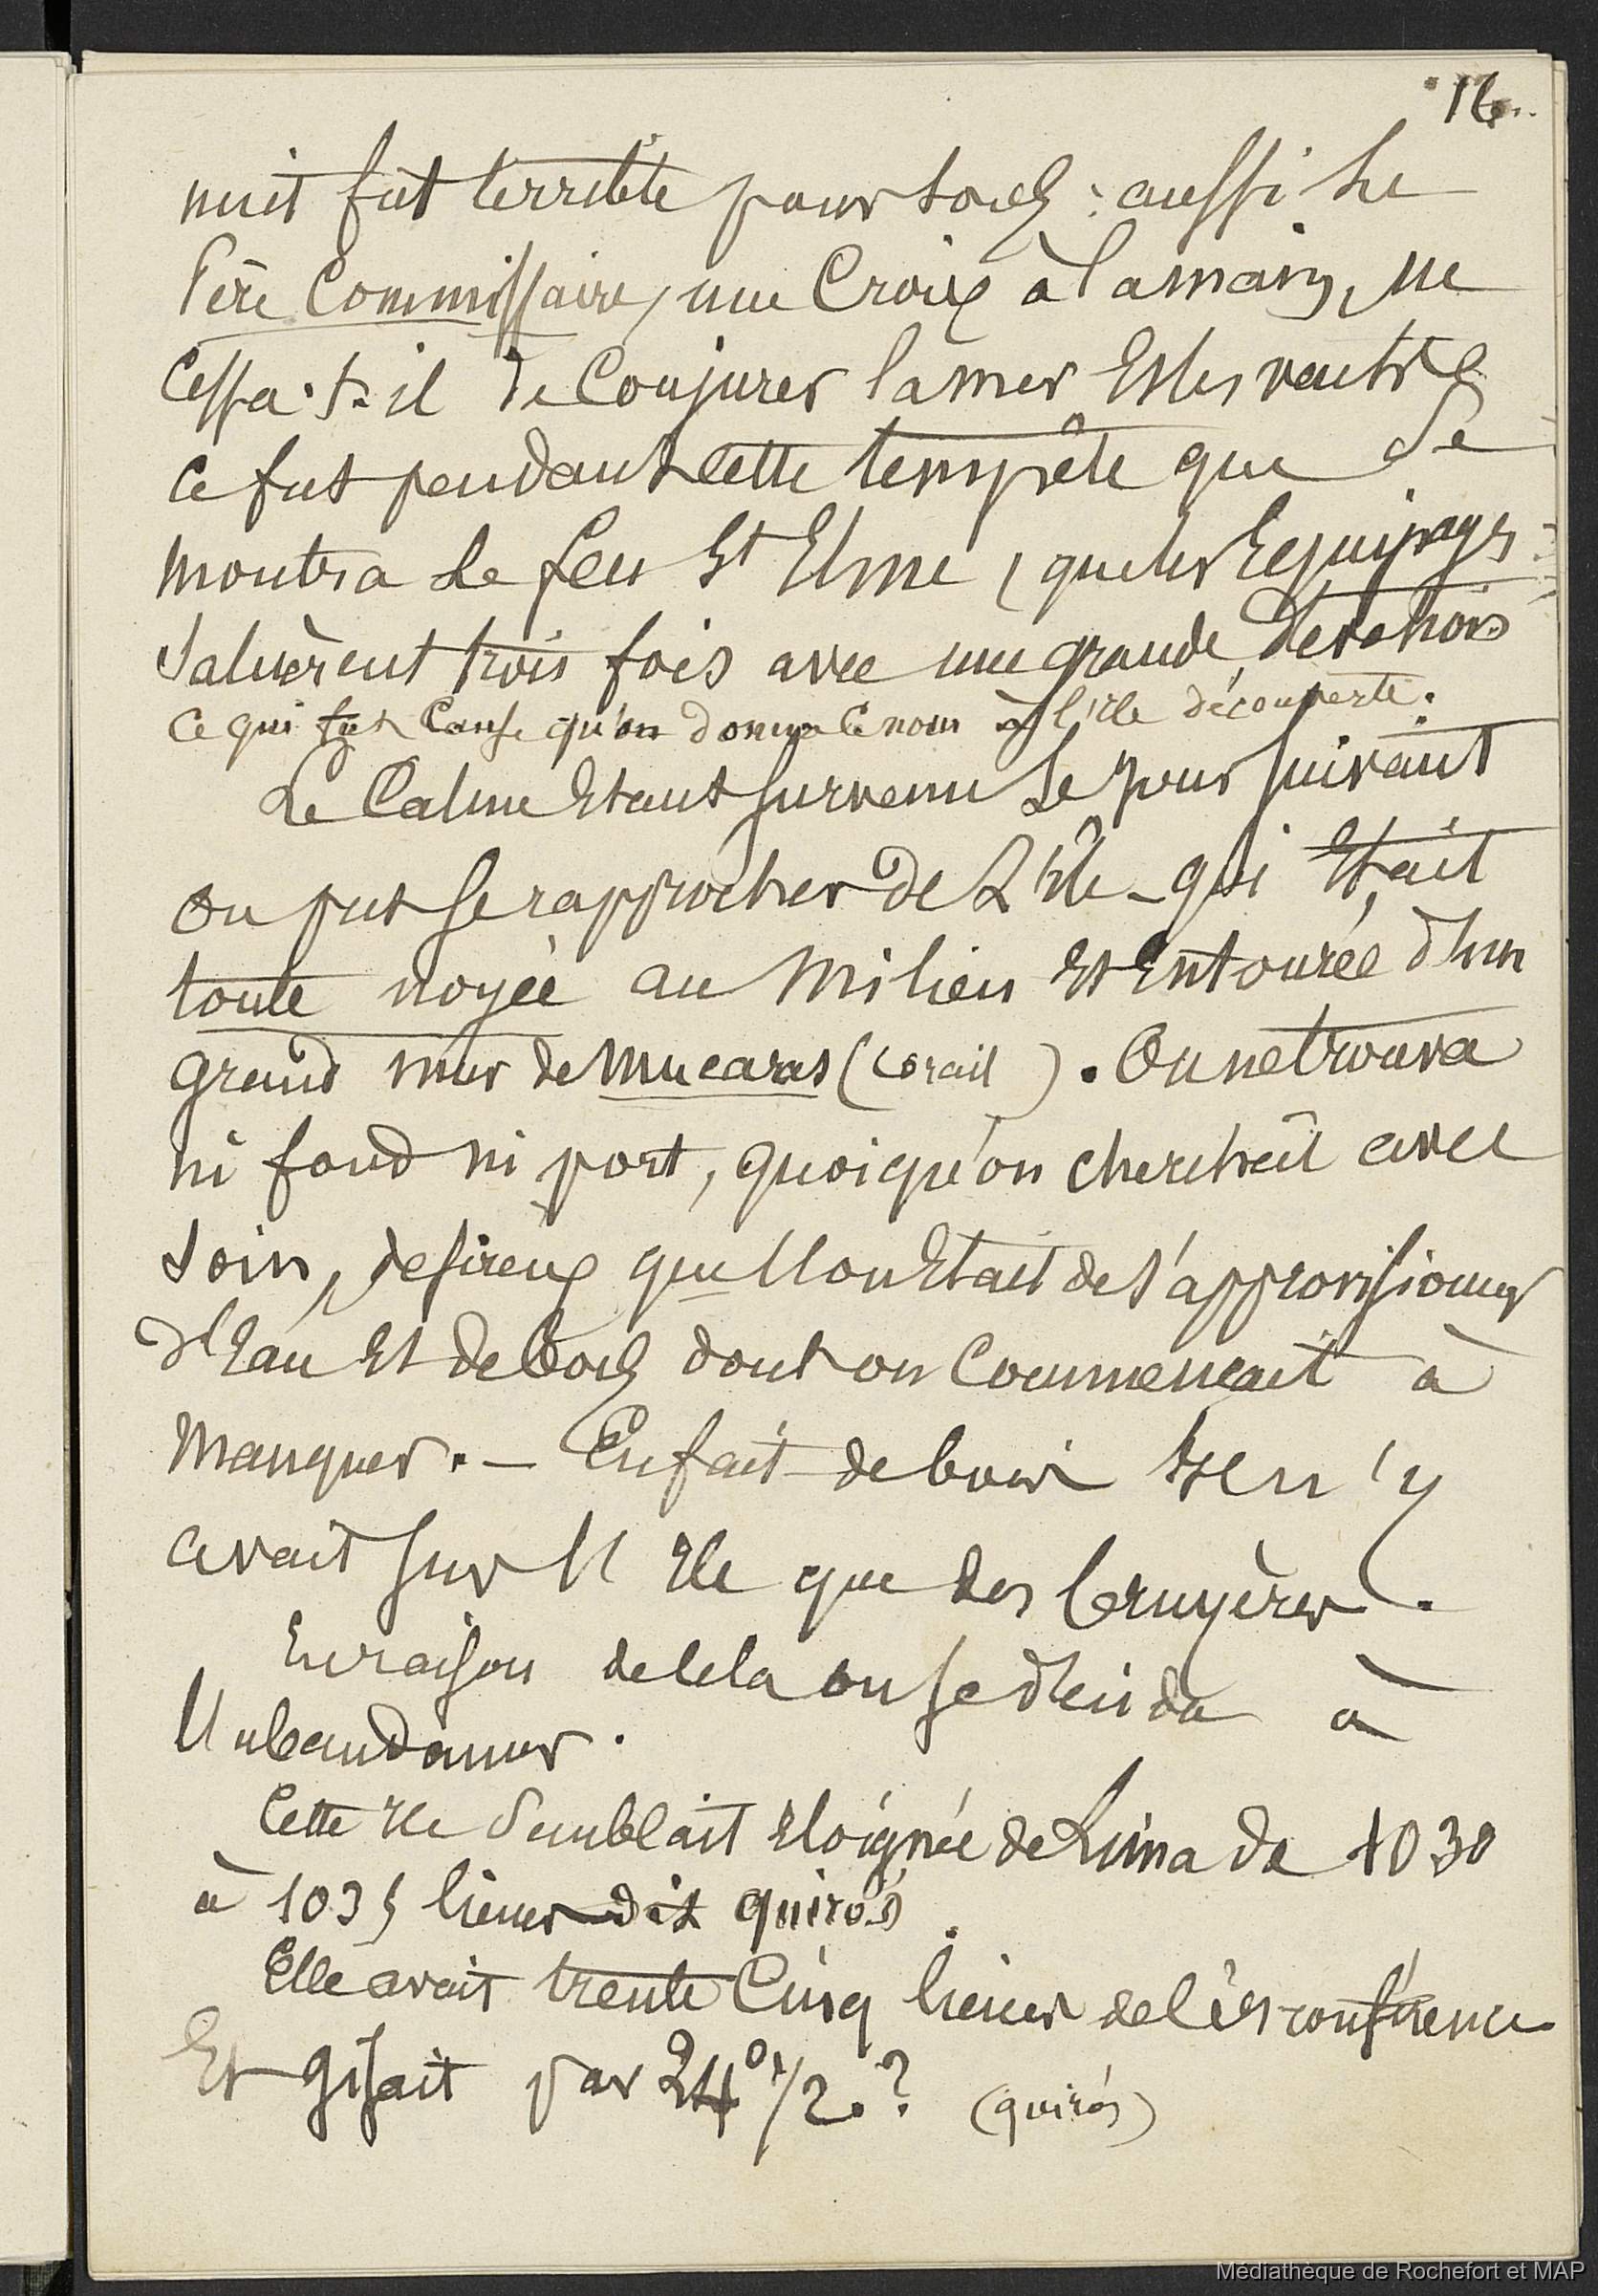 16
nuit fut terrible pour tous : aussi Le
Père Commissaire, une Croix à la main, ne
Cessa-t-il de Conjurer la mer Et les vents
Ce fut pendant cette tempête que Se
Montra Le feu St Elme, que les Equipages
Saluèrent trois fois avec une grande devotion
Ce qui fut Cause qu'on donna ce nom à l'île découverte.
Le Calme Etant survenu Le jour suivant
on put se rapprocher de L'Ile - qui Etait
toute noyée au Milieu Et Entourée d'un
grand mur de Mucaras (corail). On ne trouva
ni fond ni port, quoiqu'on cherchait avec
Soin, desireux que l'on Etait de s'approvisionner
d'Eau Et de bois dont on Commençait à
Manquer. - En fait de bois Il n'y
avait sur l'Ile que des bruyères.
En raison de cela on se décida à
l'abandonner.
Cette Ile Semblait Eloignée de Lima de 1030
à 1035 lieues dit quirós.
Elle avait trente Cinq lieues de circonférence
Et gisait par 24° 1/2.? (quirós)
Médiathèque de Rochefort et MAP